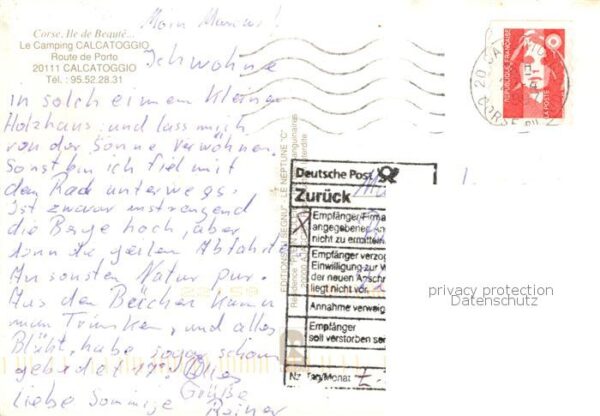 Corse, Ile de Beauté...
Le Camping CALCATOGGIO
Route de Porto
20111 CALCATOGGIO
Tél. : 95.52.28.31
Moin
Ich wohne
in solch einem kleinen
Holzhaus und lass mich
von der Sonne verwöhnen.
Sonst bin ich viel mit
dem Rad unterwegs.
Ist zwar anstrengend
die Berge hoch, aber
dann die geilen Abfahrten
Ansonsten Natur pur.
Aus den Bächen kann
man Trinken, und alles
Blüht, habe sogar schon
gebadet
liebe Sonnige Grüße
Rainer
EDITIONS "LE NEPTUNE "C"
RÉPUBLIQUE FRANÇAISE
LA POSTE
Deutsche Post
Zurück
Empfänger/Firma
angegebener
nicht zu ermitteln
Empfänger verzogen
Einwilligung zur
der neuen Anschrift
liegt nicht vor
Annahme verweig
Empfänger
soll verstorben sein
Nz, Tag/Monat
privacy protection
Datenschutz